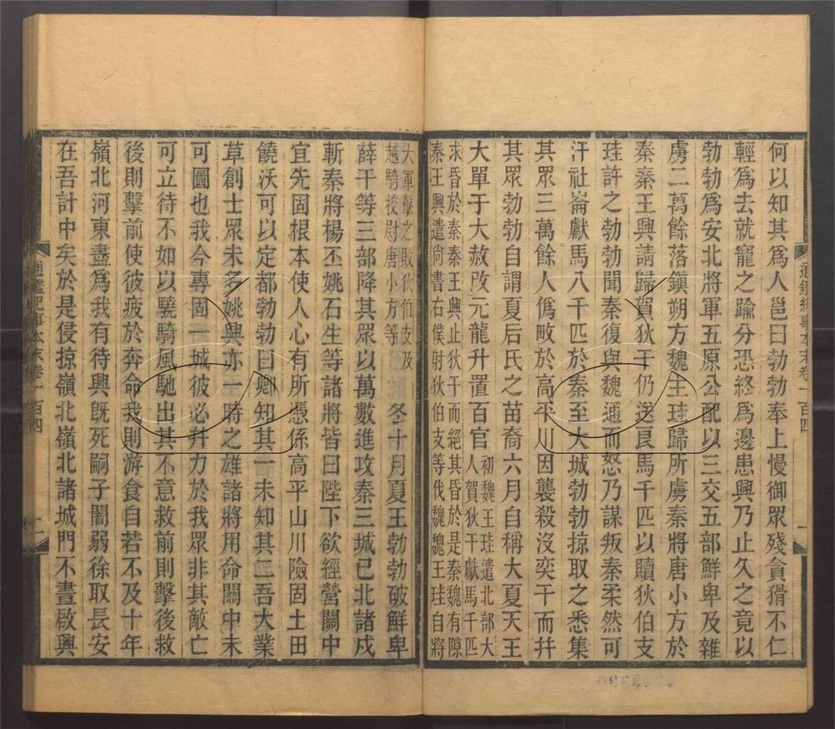 何以知其爲人邕曰勃勃奉上慢御眾殘貪猾不仁
輕爲去就寵之踰分恐終爲邊患興乃止久之竟以
勃勃爲安北將軍五原公配以三交五部鮮卑及雜
虜二萬餘落鎭朔方魏王珪歸所虜秦將唐小方於
秦秦王興請歸賀狄干仍送良馬千匹以贖狄伯支
珪許之勃勃聞秦復與魏通而怒乃謀叛秦柔然可
汗社崙獻馬八千匹於秦至大城勃勃掠取之悉集
其眾三萬餘人僞畋於高平川因襲殺沒奕干而幷
其眾勃勃自謂夏后氏之苗裔六月自稱大夏天王
大單于大赦改元龍升置百官
初魏王珪遣北部大
人賀狄干獻馬千匹
求昏於秦秦王興止狄干而絕其昏於是秦魏有隙
秦王興遣尚書右僕射狄伯支等伐魏魏王珪自將
大軍擊之敗狄伯支及
越騎校尉唐小方等
冬十月夏王勃勃破鮮卑
薛干等三部降其眾以萬數進攻秦三城已北諸戍
斬秦將楊丕姚石生等諸將皆曰陛下欲經營關中
宜先固根本使人心有所憑係高平山川險固土田
饒沃可以定都勃勃曰卿知其一未知其二吾大業
草創士眾未多姚興亦一時之雄諸將用命關中未
可圖也我今專固一城彼必幷力於我眾非其敵亡
可立待不如以驍騎風馳出其不意救前則擊後救
後則擊前使彼疲於奔命我則游食自若不及十年
嶺北河東盡爲我有待興旣死嗣子闇弱徐取長安
在吾計中矣於是侵掠嶺北嶺北諸城門不晝啟興
通鑑紀事本末卷一百四
通鑑紀事本末卷一百四